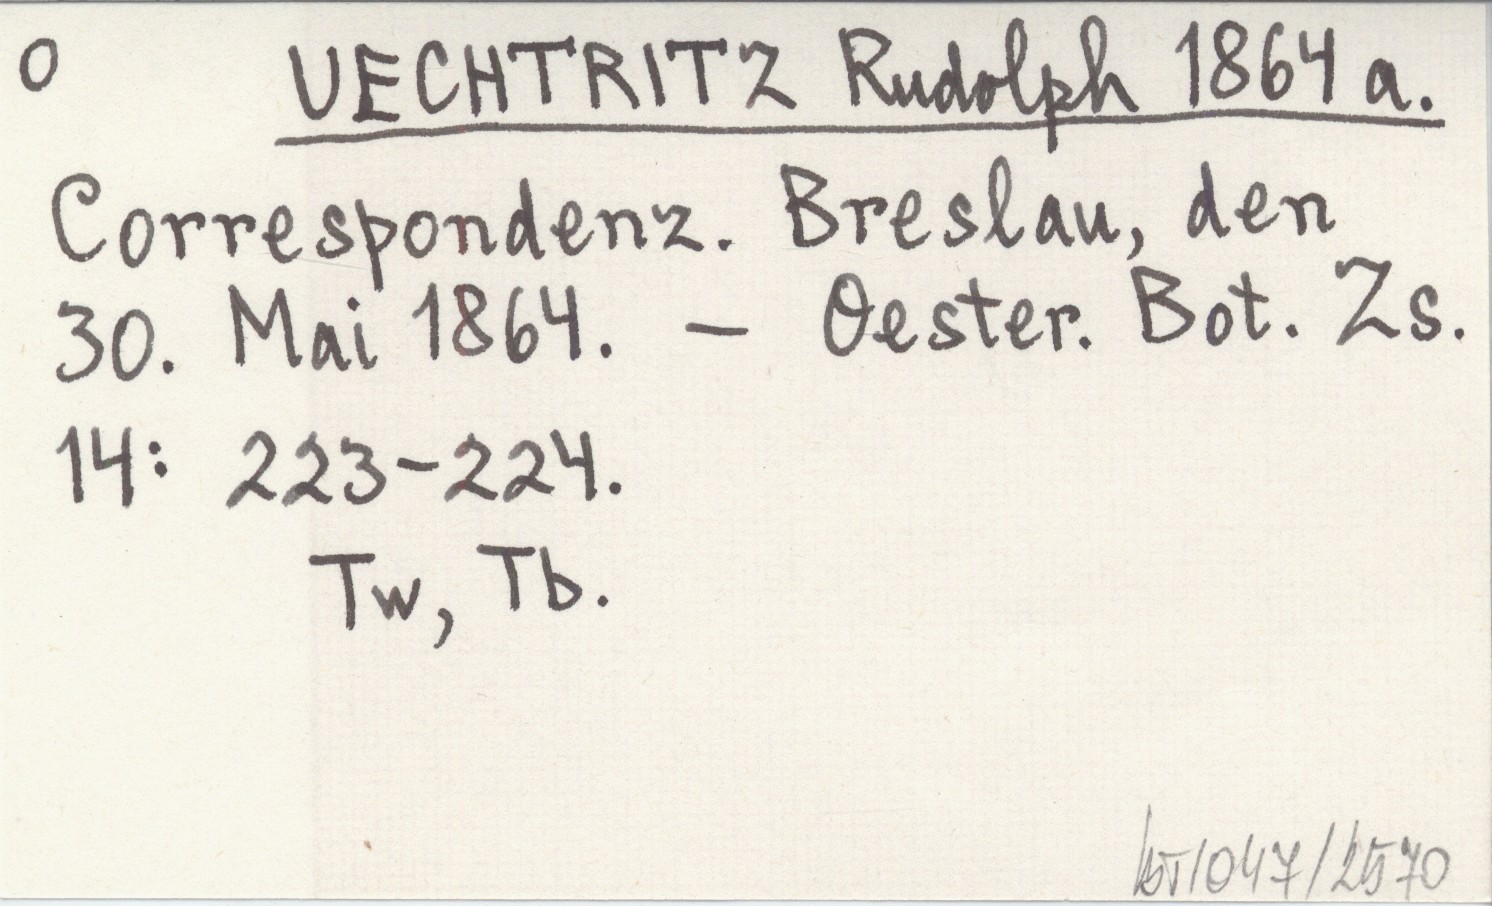 O UECHTRITZ Rudolph 1864 a.
Correspondenz. Breslau, den
30. Mai 1864. — Oester. Bot. Zs.
14: 223-224.
Tw, Tb.